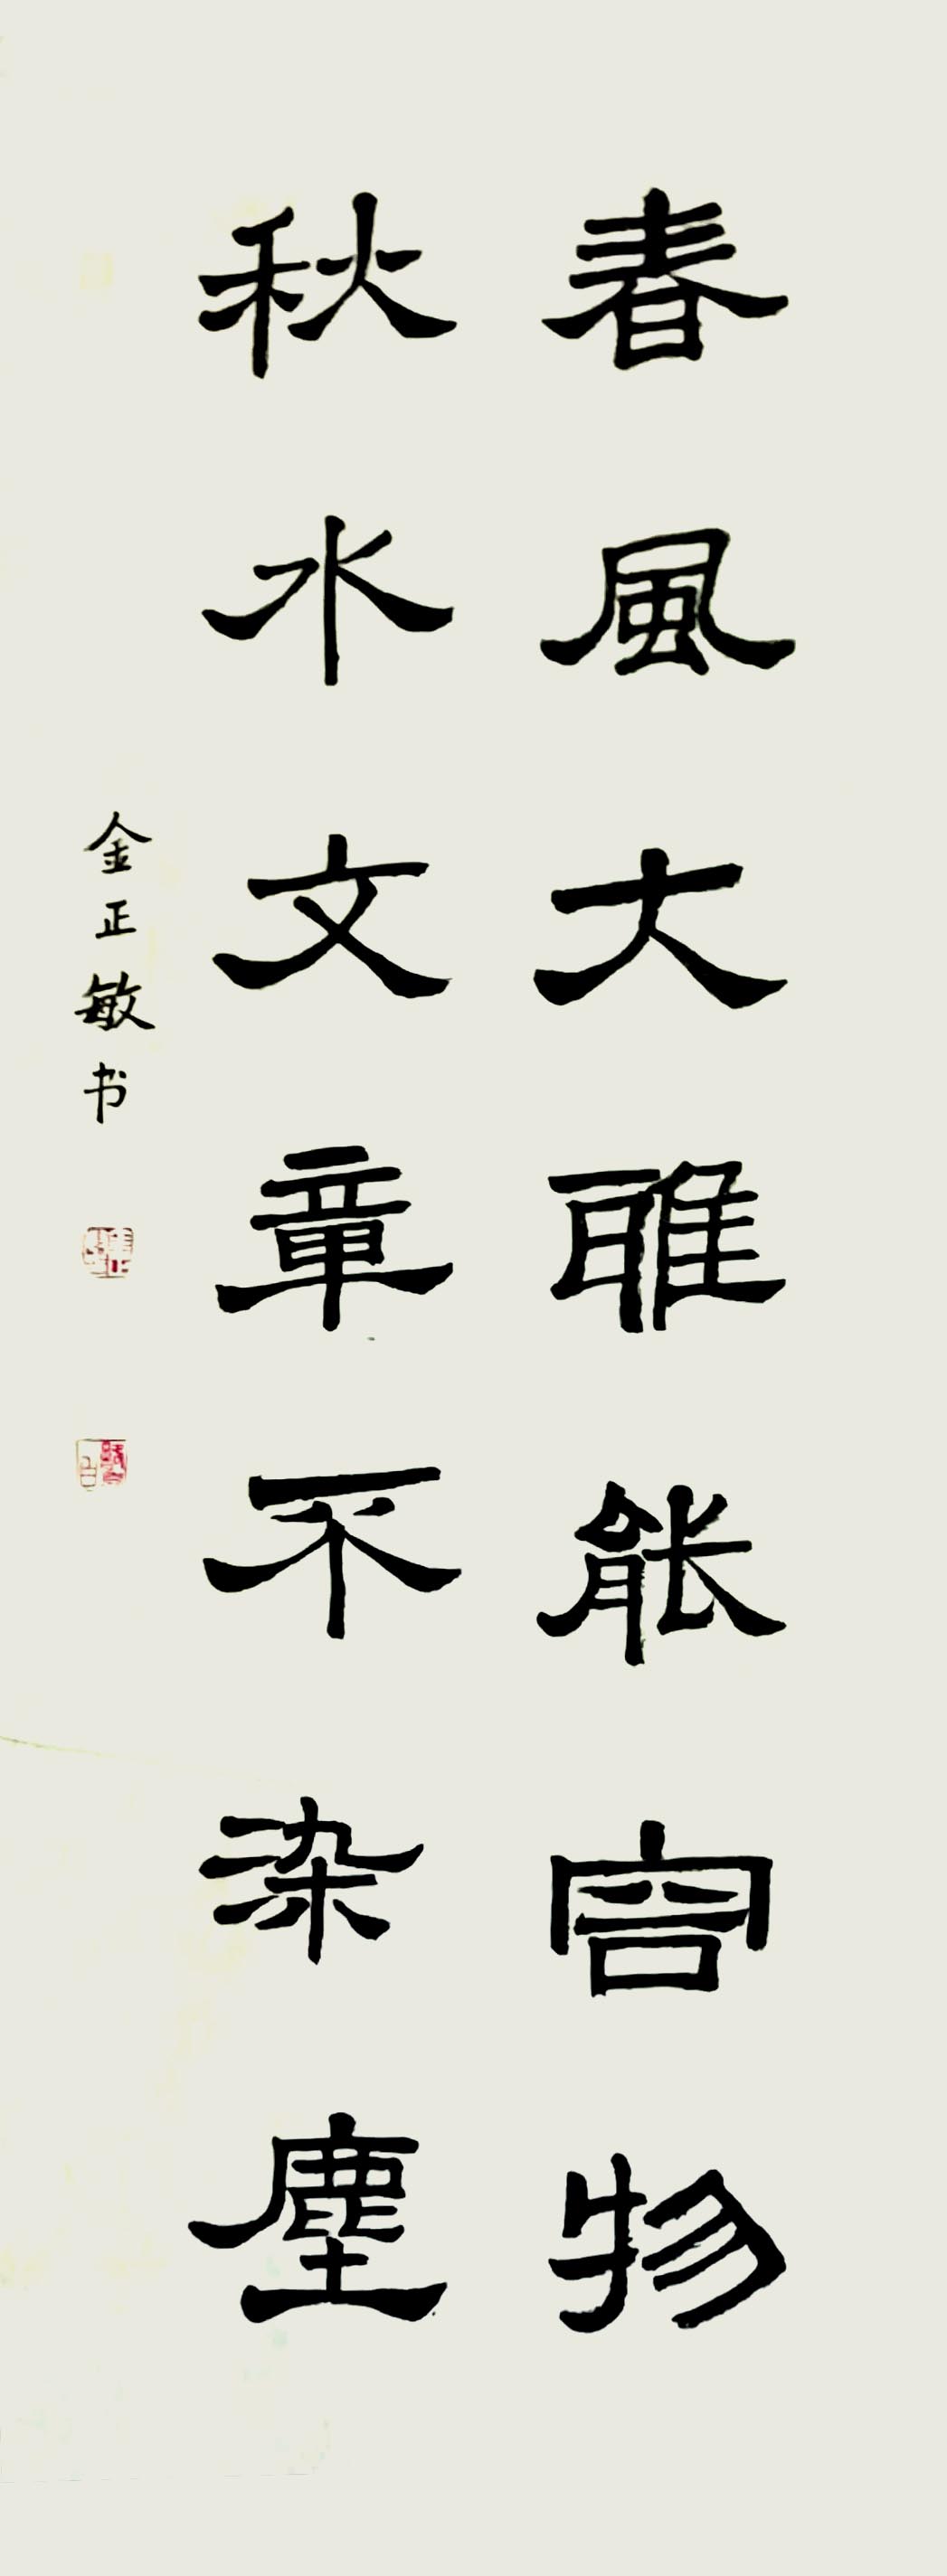 春風大雅能容物
秋水文章不染塵
金正敏书